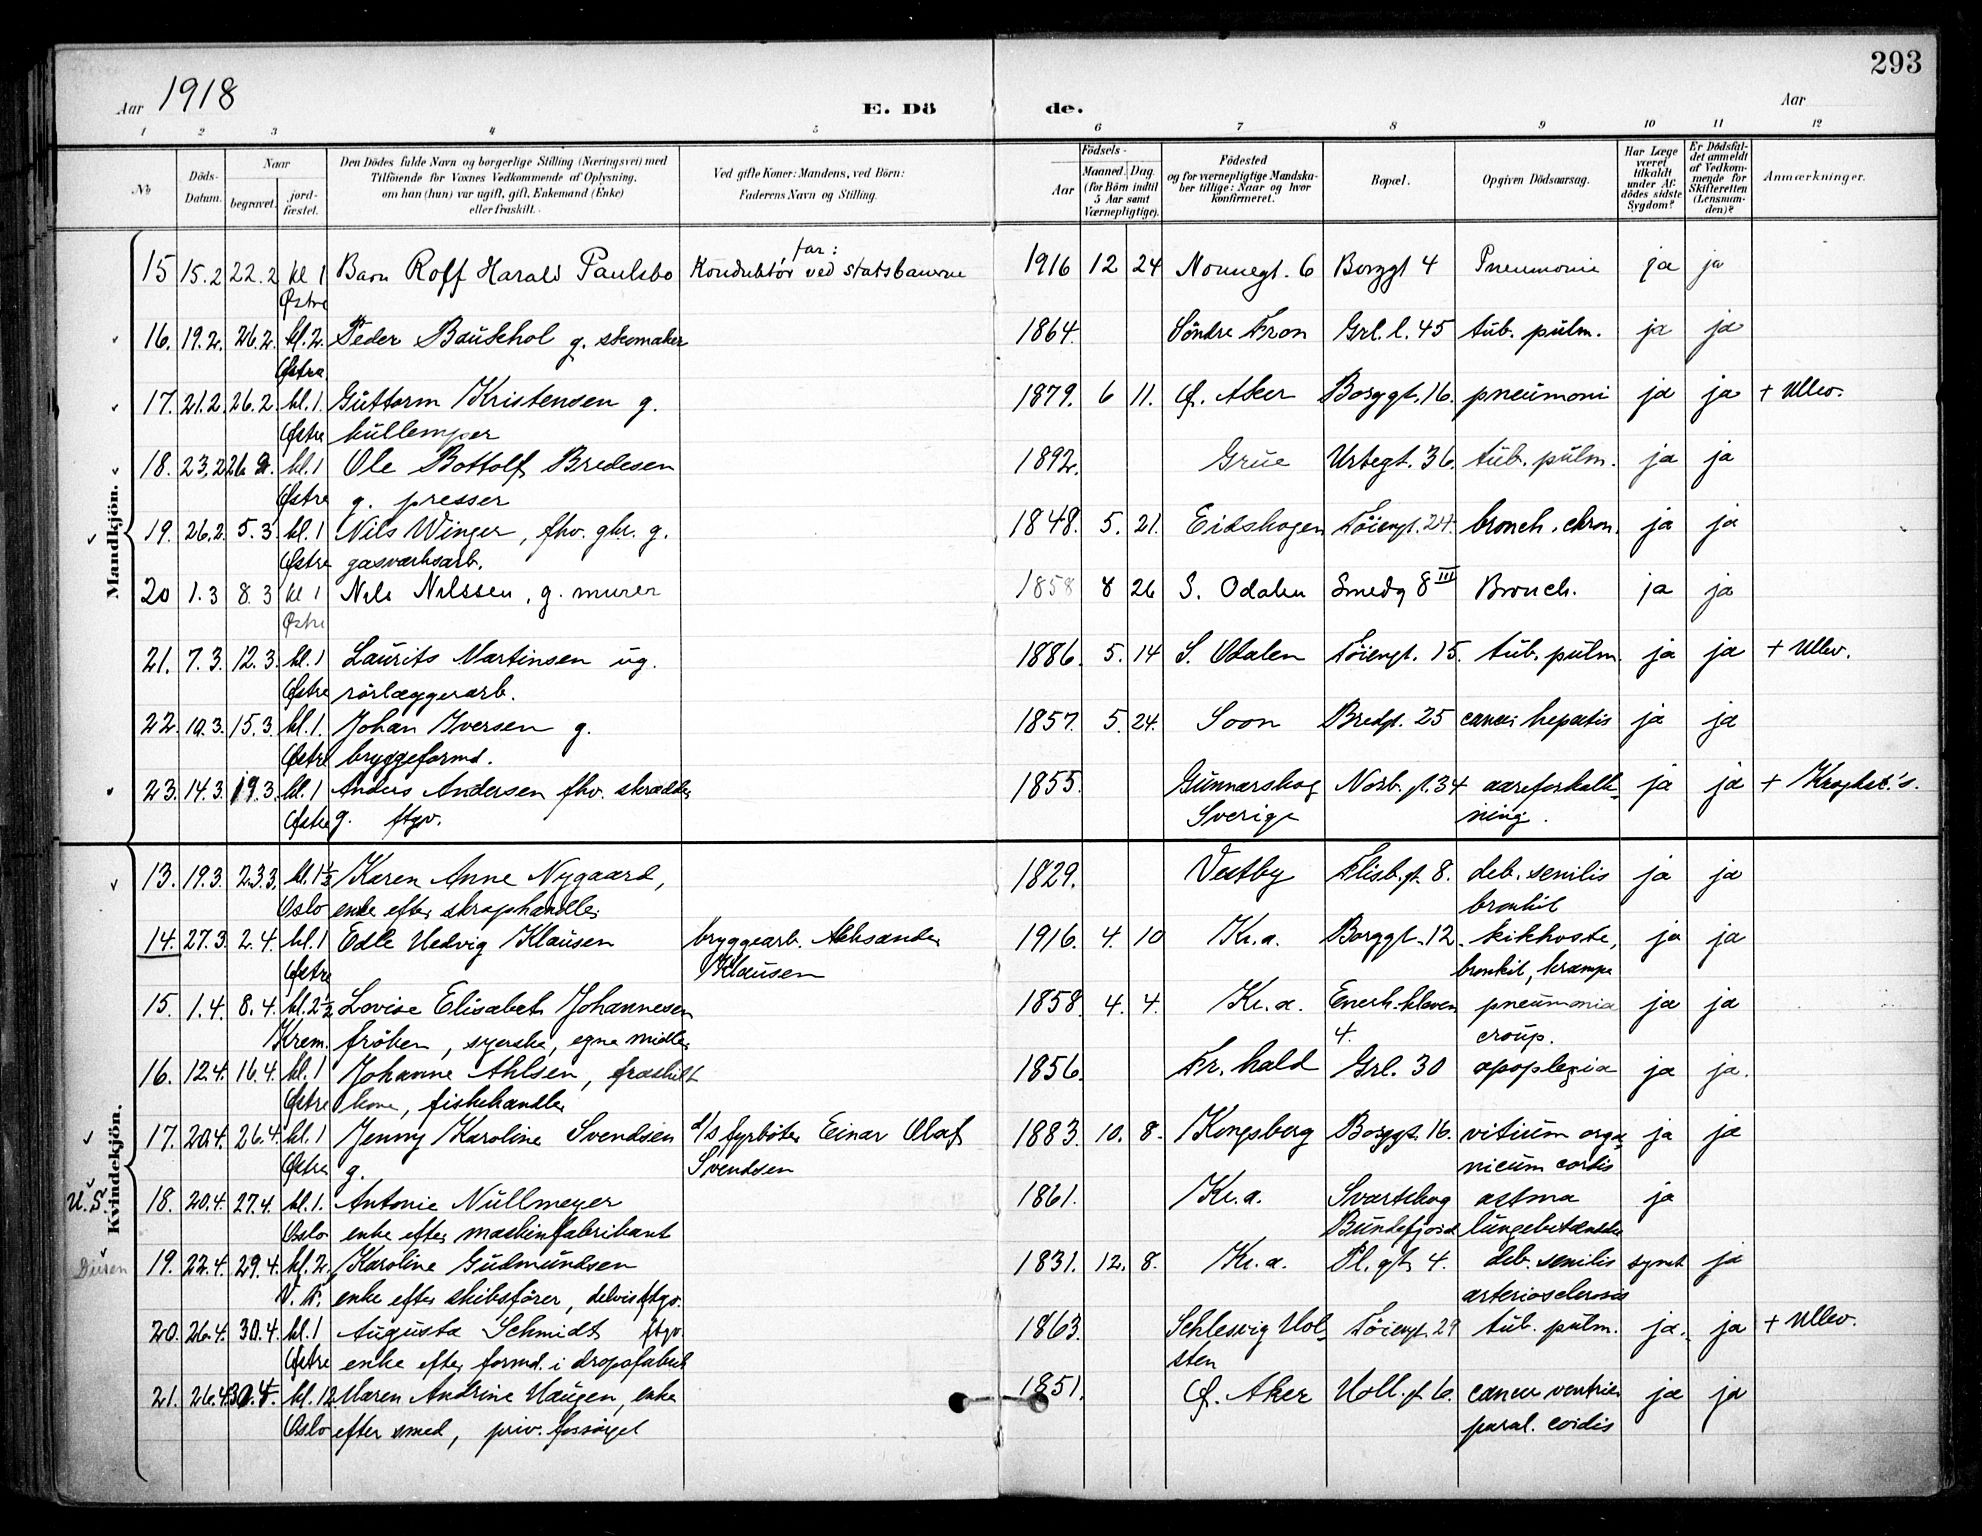 293
Aar 1918 E. Dö de. Aar
1 2 3 4 5 6 7 8 9 10 11 12
No Döds-Datum. Naar begravet. jord-fæstet. Den Dödes fulde Navn og borgerlige Stilling (Næringsvei) med Tilföiende for Voxnes Vedkommende af Oplysning, om han (hun) var ugift, gift, Enkemand (Enke) eller fraskilt. Ved gifte Koner: Mandens, ved Börn: Faderens Navn og Stilling. Födsels- Aar Maaned. Dag. (for Börn indtil 5 Aar samt Værnepligtige). Födested og for værnepligtige Mandskaber tillige: Naar og hvor konfirmeret. Bopæl. Opgiven Dödsaarsag. Har Læge været tilkaldt under Afdödes sidste Sygdom? Er Dödsfaldet anmeldt af Vedkommende for Skifteretten (Lensmanden)? Anmærkninger.
Mandkjön.
far:
15 15.2 22.2 kl 1 Barn Rolf Harald Paulsbo Konduktör ved statsbanerne 1916 12 24 Nonnegt. 6 Borggt 4 Pneumonie ja ja
Østre
16. 19.2. 26.2. kl.2. Peder Baukhol g. skomaker 1864. Söndre Fron Grl.l. 45 tub. pulm. ja ja
Østre
17. 21.2. 26.2. kl.1. Guttorm Kristensen g. 1879. 6 11. Ø. Aker Borggt. 16. pneumoni ja ja + Ullev.
Østre kullemper
18. 23.2 26 2. kl.1 Ole Bottolf Bredesen 1892. Grue Urtegt. 36. tub. pulm. ja ja
Østre g. presser
19. 26.2. 5.3. kl.1 Nils Winger, fhv. ghr. g. 1848. 5. 21. Eidskogen Töiengt. 24. bronch. chron. ja ja
Østre gasværksarb.
20 1.3 8.3 kl 1 Nils Nilssen, g. murer 1858 8 26 S. Odalen Smedg 8 III Bronch. ja ja
Østre
21. 7.3. 12.3. kl.1 Laurits Martinsen ug. 1886. 5. 14 S. Odalen Töiengt. 15. tub. pulm. ja ja + Ullev.
Østre rörlæggerarb.
22. 10.3. 15.3. kl.1. Johan Iversen g. 1857. 5. 24. Soon Bredgt. 25 cancer hepatis ja ja
Østre bryggeformd.
23. 14.3. 19.3. kl.1 Anders Andersen fhv. skrædder 1855. Gunnarskog Norb. gt. 34 aareforkalk- ja ja + Kroghst.'s.
Østre g. ftgv. Sverige ning.
Kvindekjön.
13. 19.3. 23.3. kl.1 1/2 Karen Anne Nygaard, 1829. Vestby Flisb. gt. 8. deb. senilis ja ja
Oslo enke efter skraphandler bronkit
14. 27.3. 2.4. kl.1 Edle Hedvig Klausen bryggearb. Aleksander 1916. 4. 10 Kr.a. Borggt. 12. kikhoste, ja ja
Østre Klausen bronkit, krampe
15. 1.4. 8.4. kl.2 1/2 Lovise Elisabeth Johannesen 1858. 4. 4. Kr.a. Enerh. kleven pneumonia ja ja
Krem. fröken, syerske, egne midler 4. croup.
16. 12.4. 16.4. kl.1 Johanne Ahlsen, fraskilt 1856. Fr.hald Grl. 30 apoplexia ja ja.
Østre kone, fiskehandler
17. 20.4. 26.4. kl.1 Jenny Karoline Svendsen d/s fyrböter Einar Olaf 1883. 10. 8. Kongsberg Borggt. 16. vitium orga- ja ja
Østre g. Svendsen nicum cordis
U.S. 18. 20.4. 27.4. kl.1. Antonie Nullmeyer 1861. Kr.a. Svartskog astma ja
Oslo enke efter maskinfabrikant Bundefjord lungebetændelse
Duren 19. 22.4. 29.4. kl.2. Karoline Gudmundsen 1831. 12. 8. Kr.a. Pl. gt. 4. deb. senilis synt ja
V.A. enke efter skibsförer, delvis ftgv. arteriosclerosis
20. 26.4. 30.4. kl.1 Augusta Schmidt ftgv. 1863. Schlesvig Hol- Töiengt. 29 tub. pulm. ja. ja + Ullev.
Østre enke efter formd. i dropsfabrik sten
21. 26.4. 30.4. kl. 1 1/2 Maren Andrine Haugen, enke 1851. Ø. Aker Holl. gt 6. cancer ventric. ja ja
Oslo efter smed, priv. forsörget paral. cordis